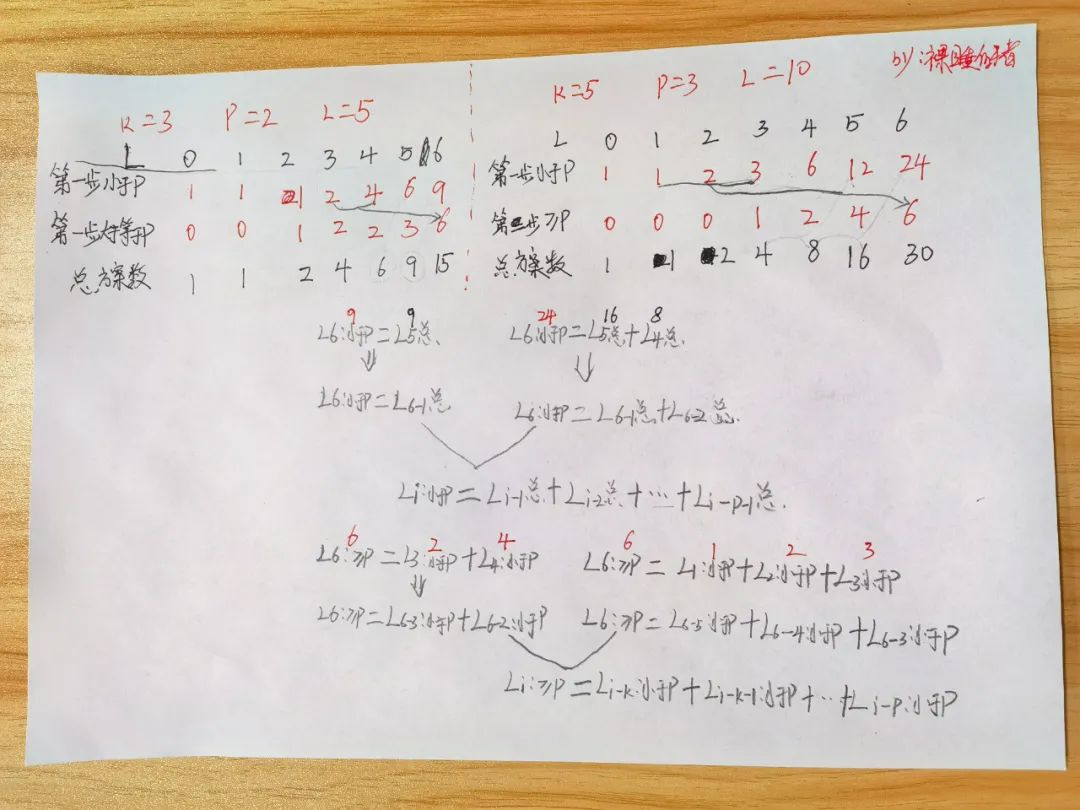 by:裸睡的
K=3 P=2 L=5
L 0 1 2 3 4 5 6
第一步小于P 1 1 1 2 4 6 9
第一步大于等于P 0 0 1 2 2 3 6
总方案数 1 1 2 4 6 9 15
K=5 P=3 L=10
L 0 1 2 3 4 5 6
第一步小于P 1 1 2 3 6 12 24
第一步≥P 0 0 0 1 2 4 6
总方案数 1 1 2 4 8 16 30
9 9
L6:小于P=L5总
24 16 8
L6:小于P=L5总+L4总
L6:小于P=L6-1总
L6:小于P=L6-1总+L6-2总
Li:小于P=Li-1总+Li-2总+…+Li-p-1总
6 2 4
L6:≥P=L3:小于P+L4:小于P
6 1 2 3
L6:≥P=L1:小于P+L2:小于P+L3:小于P
L6:≥P=L6-3:小于P+L6-2:小于P
L6:≥P=L6-5:小于P+L6-4:小于P+L6-3:小于P
Li:≥P=Li-k:小于P+Li-k-1:小于P+…+Li-p:小于P